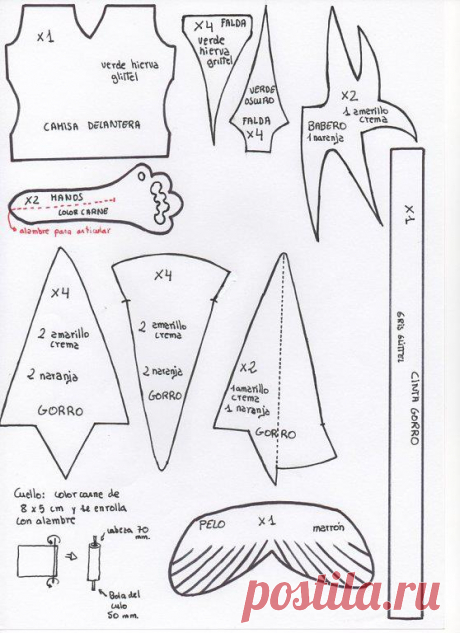 x1
verde hierva
glittel
CAMISA DELANTERA
x4 FALDA
verde
hierva
griltel
VERDE
OSCURO
FALDA
x4
x2
1 amarillo
crema
BABERO
1 naranja
x2 MANOS
COLOR CARNE
alambre para articular
x4
2 amarillo
crema
2 naranja
GORRO
x4
2 amarillo
crema
2 naranja
GORRO
x2
1 amarillo
crema
1 naranja
GORRO
x1
CINTA GORRO
Cuello: color carne de
8 x 5 cm y se enrolla
con alambre
cabeza 70
mm.
Bola del
culo
50 mm.
PELO x1 marrón
postila.ru